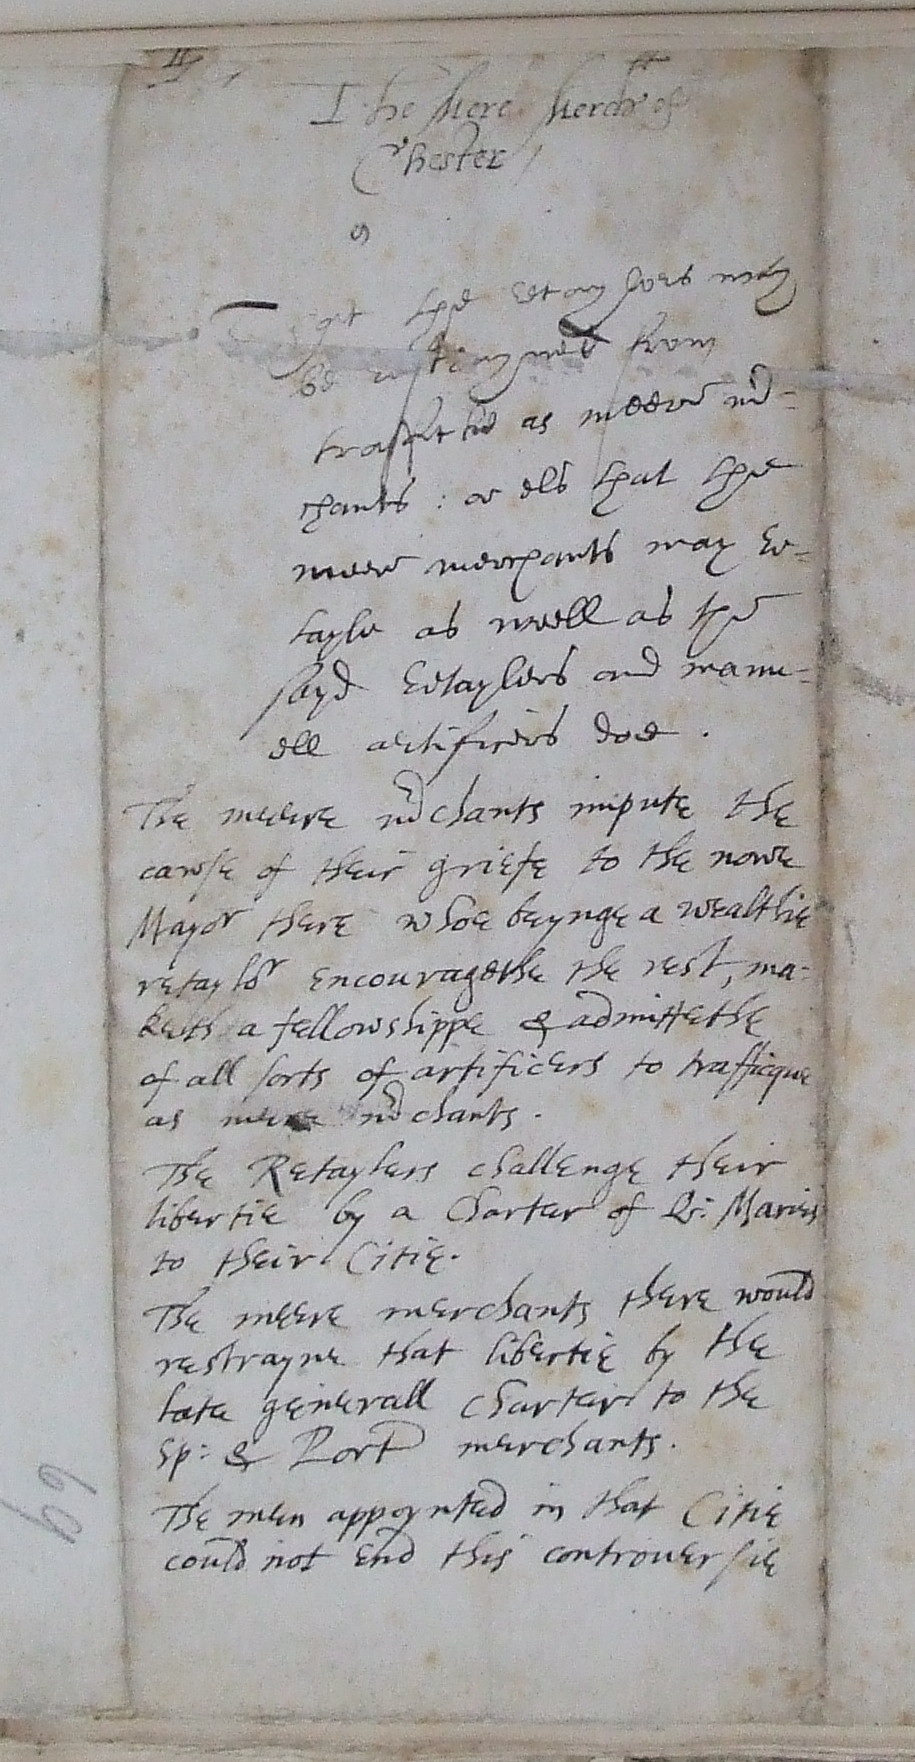 The Mere Merch^{ts} of
Chester
9
That the Retaylors may
be restrayned from
traffique as meere m̃-
chants : or els that the
meere merchants may Re-
tayle as well as the
sayd Retaylers and manu-
ell artificers doe .
The meere m̃chants impute the
cawse of their griefe to the nowe
Mayor there whoe beynge a wealthie
retaylor encouragethe the rest, ma-
keth a fellowshippe & admittethe
of all sorts of artificers to trafficque
as mere m̃chants .
The Retaylers challenge their
libertie by a Charter of Q: Maries
to their Citie.
The meere merchants there would
restrayne that libertie by the
late generall charter to the
Sp: & Port merchants.
The men appoynted in that Citie
could not end this controuersie
69